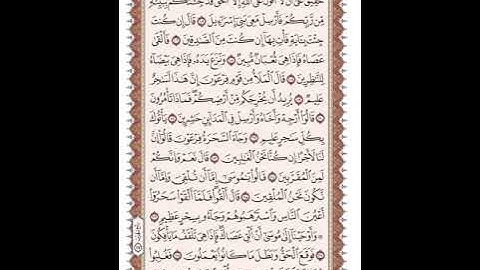 حَقِيقٌ عَلَىٰٓ أَن لَّآ أَقُولَ عَلَى ٱللَّهِ إِلَّا ٱلْحَقَّ قَدْ جِئْتُكُم بِبَيِّنَةٍ
مِّن رَّبِّكُمْ فَأَرْسِلْ مَعِىَ بَنِىٓ إِسْرَٰٓءِيلَ ١٠٥ قَالَ إِن كُنتَ
جِئْتَ بِـَٔايَةٍ فَأْتِ بِهَآ إِن كُنتَ مِنَ ٱلصَّٰدِقِينَ ١٠٦ فَأَلْقَىٰ
عَصَاهُ فَإِذَا هِىَ ثُعْبَانٌ مُّبِينٌ ١٠٧ وَنَزَعَ يَدَهُۥ فَإِذَا هِىَ بَيْضَآءُ
لِلنَّٰظِرِينَ ١٠٨ قَالَ ٱلْمَلَأُ مِن قَوْمِ فِرْعَوْنَ إِنَّ هَٰذَا لَسَٰحِرٌ
عَلِيمٌ ١٠٩ يُرِيدُ أَن يُخْرِجَكُم مِّنْ أَرْضِكُمْ فَمَاذَا تَأْمُرُونَ
١١٠ قَالُوٓا۟ أَرْجِهْ وَأَخَاهُ وَأَرْسِلْ فِى ٱلْمَدَآئِنِ حَٰشِرِينَ ١١١ يَأْتُوكَ
بِكُلِّ سَٰحِرٍ عَلِيمٍ ١١٢ وَجَآءَ ٱلسَّحَرَةُ فِرْعَوْنَ قَالُوٓا۟ إِنَّ
لَنَا لَأَجْرًا إِن كُنَّا نَحْنُ ٱلْغَٰلِبِينَ ١١٣ قَالَ نَعَمْ وَإِنَّكُمْ
لَمِنَ ٱلْمُقَرَّبِينَ ١١٤ قَالُوا۟ يَٰمُوسَىٰٓ إِمَّآ أَن تُلْقِىَ وَإِمَّآ أَن
نَّكُونَ نَحْنُ ٱلْمُلْقِينَ ١١٥ قَالَ أَلْقُوا۟ فَلَمَّآ أَلْقَوْا۟ سَحَرُوٓا۟
أَعْيُنَ ٱلنَّاسِ وَٱسْتَرْهَبُوهُمْ وَجَآءُو بِسِحْرٍ عَظِيمٍ ١١٦
۞ وَأَوْحَيْنَآ إِلَىٰ مُوسَىٰٓ أَنْ أَلْقِ عَصَاكَ فَإِذَا هِىَ تَلْقَفُ مَا يَأْفِكُونَ
١١٧ فَوَقَعَ ٱلْحَقُّ وَبَطَلَ مَا كَانُوا۟ يَعْمَلُونَ ١١٨ فَغُلِبُوا۟